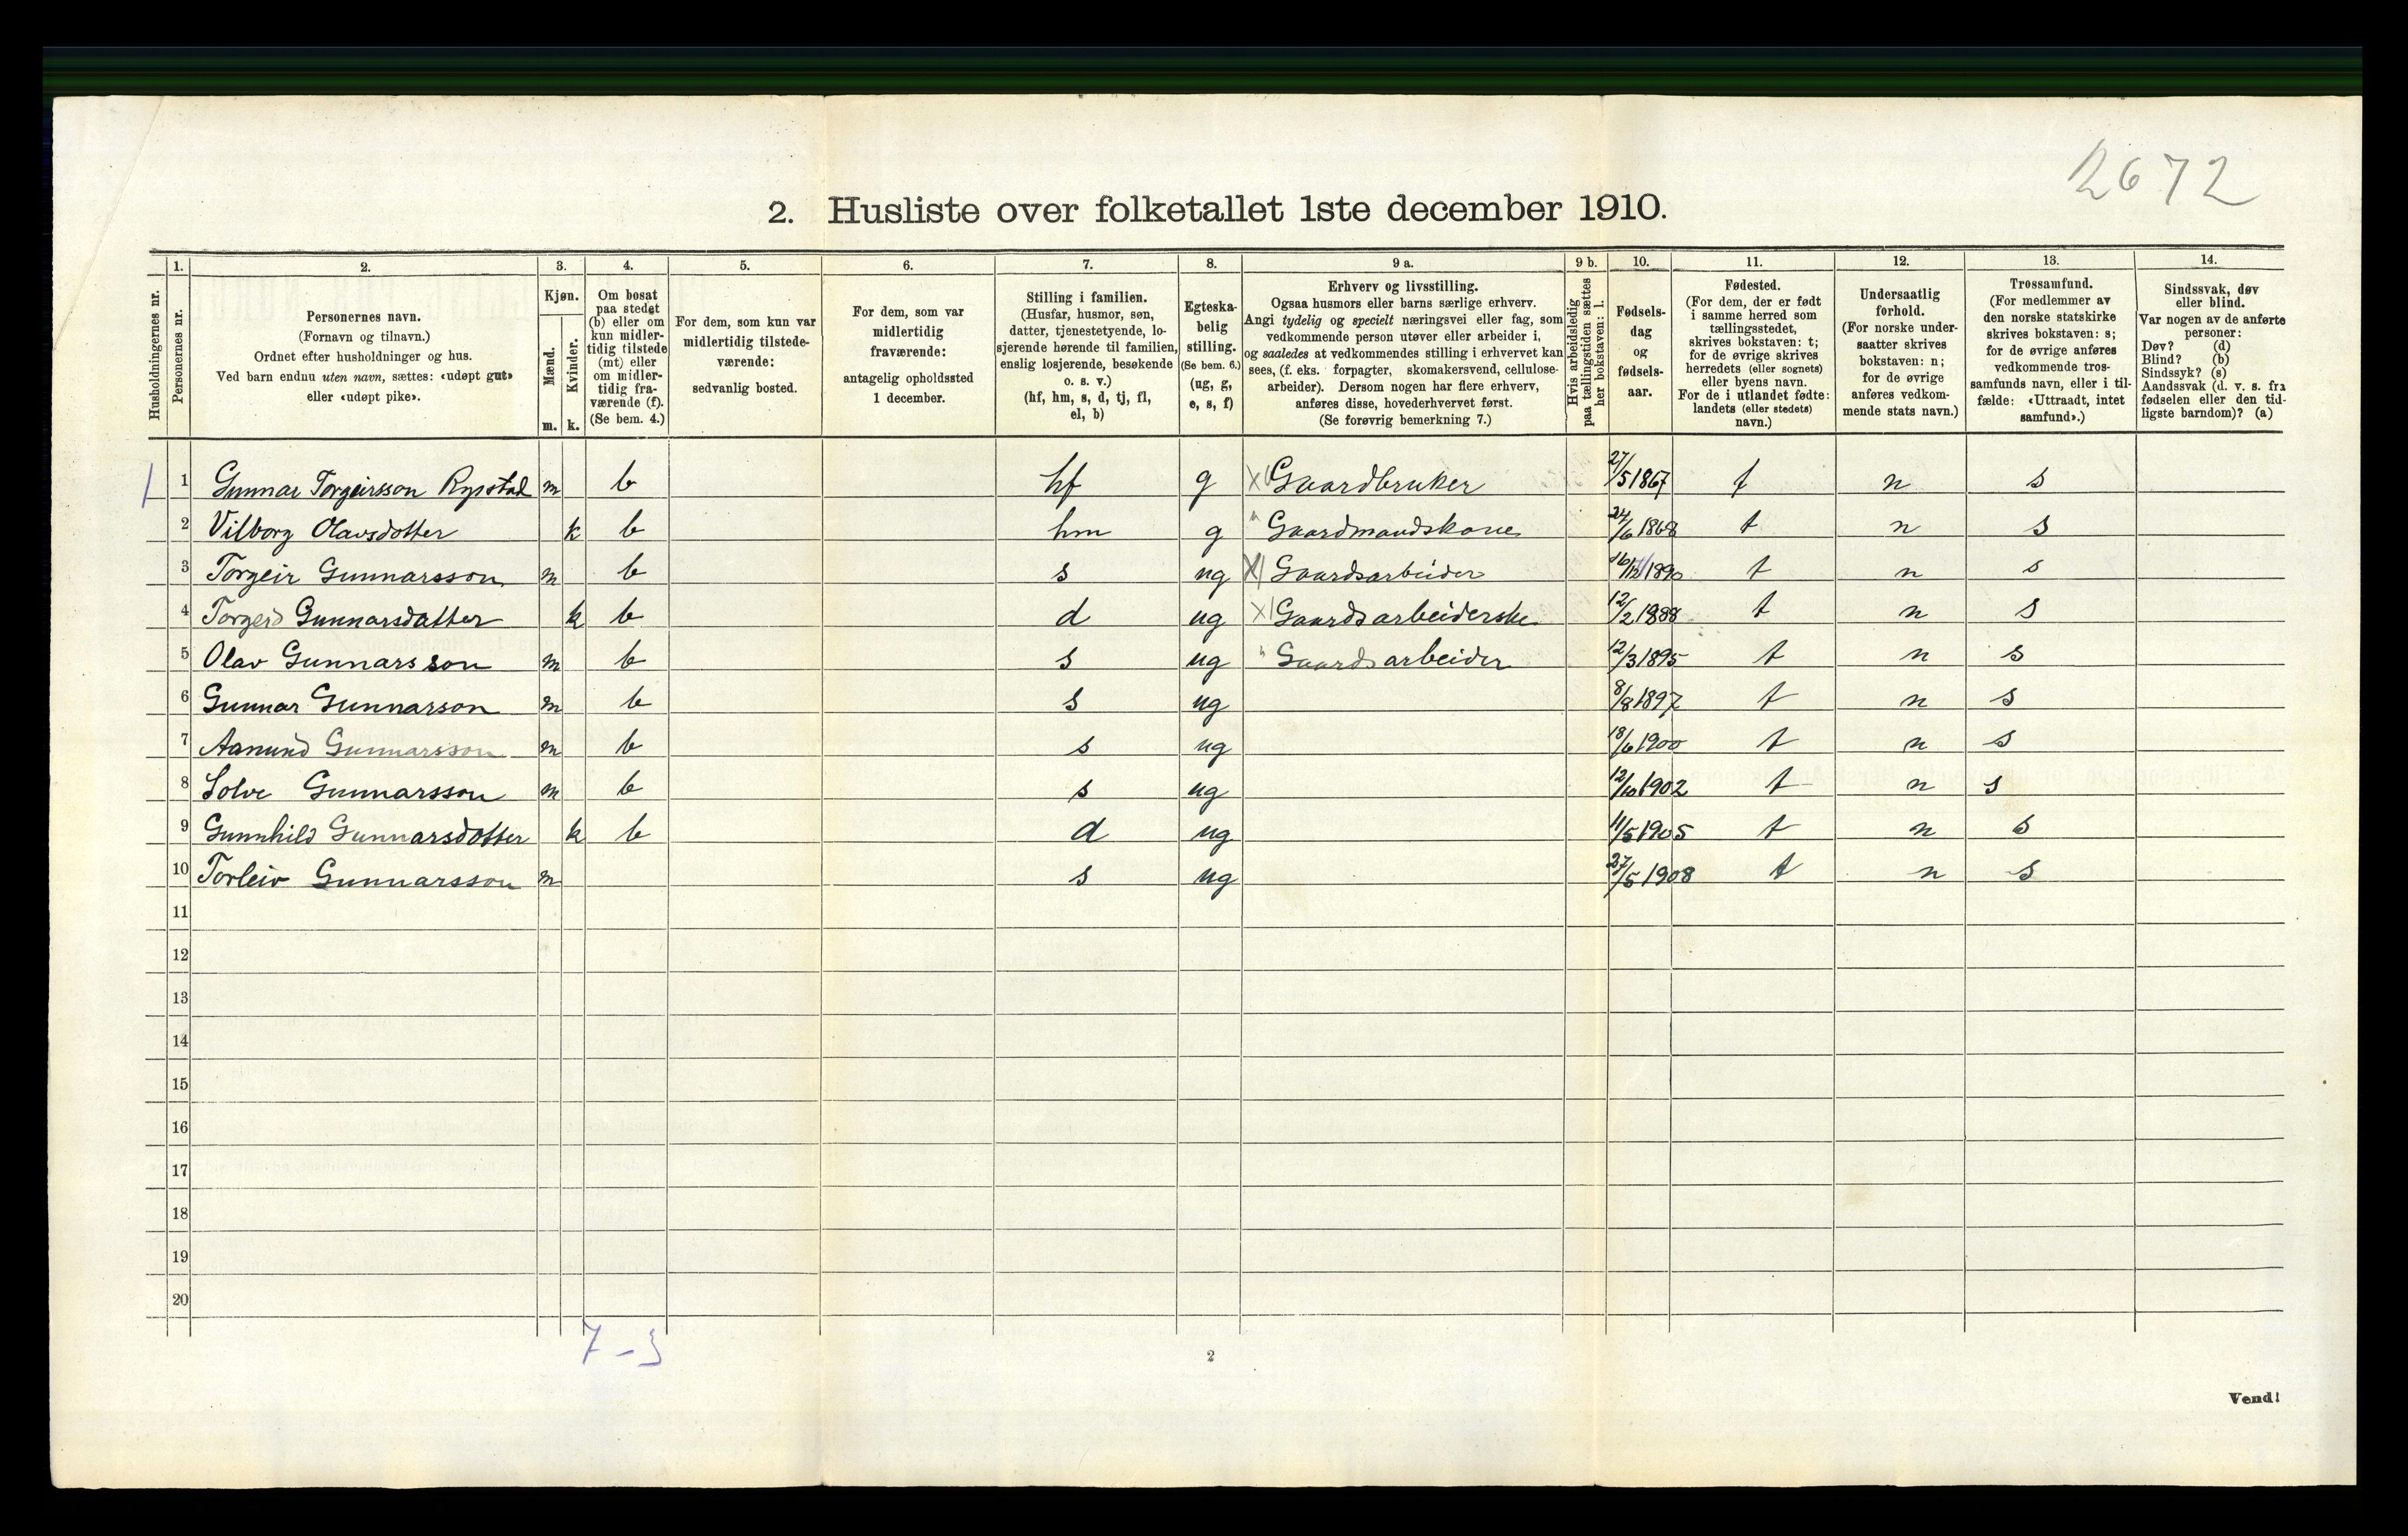 2672
2. Husliste over folketallet 1ste december 1910.
Husholdningernes nr.
1. Personernes nr.
2. Personernes navn.
(Fornavn og tilnavn.)
Ordnet efter husholdninger og hus.
Ved barn endnu uten navn, sættes: «udøpt gut»
eller «udøpt pike».
3. Kjøn.
Mænd. Kvinder.
m. k.
4. Om bosat
paa stedet
(b) eller om
kun midler-
tidig tilstede
(mt) eller
om midler-
tidig fra-
værende (f).
(Se bem. 4.)
5. For dem, som kun var
midlertidig tilstede-
værende:
sedvanlig bosted.
6. For dem, som var
midlertidig
fraværende:
antagelig opholdssted
1 december.
7. Stilling i familien.
(Husfar, husmor, søn,
datter, tjenestetyende, lo-
sjerende hørende til familien,
enslig losjerende, besøkende
o. s. v.)
(hf, hm, s, d, tj, fl,
el, b)
8. Egteska-
belig
stilling.
(Se bem. 6.)
(ug, g,
e, s, f)
9 a. Erhverv og livsstilling.
Ogsaa husmors eller barns særlige erhverv.
Angi tydelig og specielt næringsvei eller fag, som
vedkommende person utøver eller arbeider i,
og saaledes at vedkommendes stilling i erhvervet kan
sees, (f. eks. forpagter, skomakersvend, cellulose-
arbeider). Dersom nogen har flere erhverv,
anføres disse, hovederhvervet først.
(Se forøvrig bemerkning 7.)
9 b. Hvis arbeidsledig
paa tællingstiden sættes
her bokstaven: l.
10. Fødsels-
dag
og
fødsels-
aar.
11. Fødested.
(For dem, der er født
i samme herred som
tællingsstedet,
skrives bokstaven: t;
for de øvrige skrives
herredets (eller sognets)
eller byens navn.
For de i utlandet fødte:
landets (eller stedets)
navn.)
12. Undersaatlig
forhold.
(For norske under-
saatter skrives
bokstaven: n;
for de øvrige
anføres vedkom-
mende stats navn.)
13. Trossamfund.
(For medlemmer av
den norske statskirke
skrives bokstaven: s;
for de øvrige anføres
vedkommende tros-
samfunds navn, eller i til-
fælde: «Uttraadt, intet
samfund».)
14. Sindssvak, døv
eller blind.
Var nogen av de anførte
personer:
Døv? (d)
Blind? (b)
Sindssyk? (s)
Aandssvak (d. v. s. fra
fødselen eller den tid-
ligste barndom)? (a)
1 1 Gunnar Torgeirsson Rypstad m b hf g X Gaardbruker 27/5 1867 t n s
2 Vilborg Olavsdotter k b hm g " Gaardmandskone 24/6 1868 t n s
3 Torgeir Gunnarsson m b s ug X Gaardsarbeider 1890 t n s
4 Torgerd Gunnarsdatter k b d ug X Gaardsarbeiderske 12/2 1888 t n s
5 Olav Gunnarsson m b s ug " Gaardsarbeider 12/3 1895 t n s
6 Gunnar Gunnarson m b s ug 8/8 1897 t n s
7 Aanund Gunnarsson m b s ug 18/6 1900 t n s
8 Solve Gunnarsson m b s ug 12/10 1902 t n s
9 Gunnhild Gunnarsdotter k b d ug 11/5 1905 t n s
10 Torleiv Gunnarsson m s ug 27/5 1908 t n s
11
12
13
14
15
16
17
18
19
20
7 - 3
2
Vend!